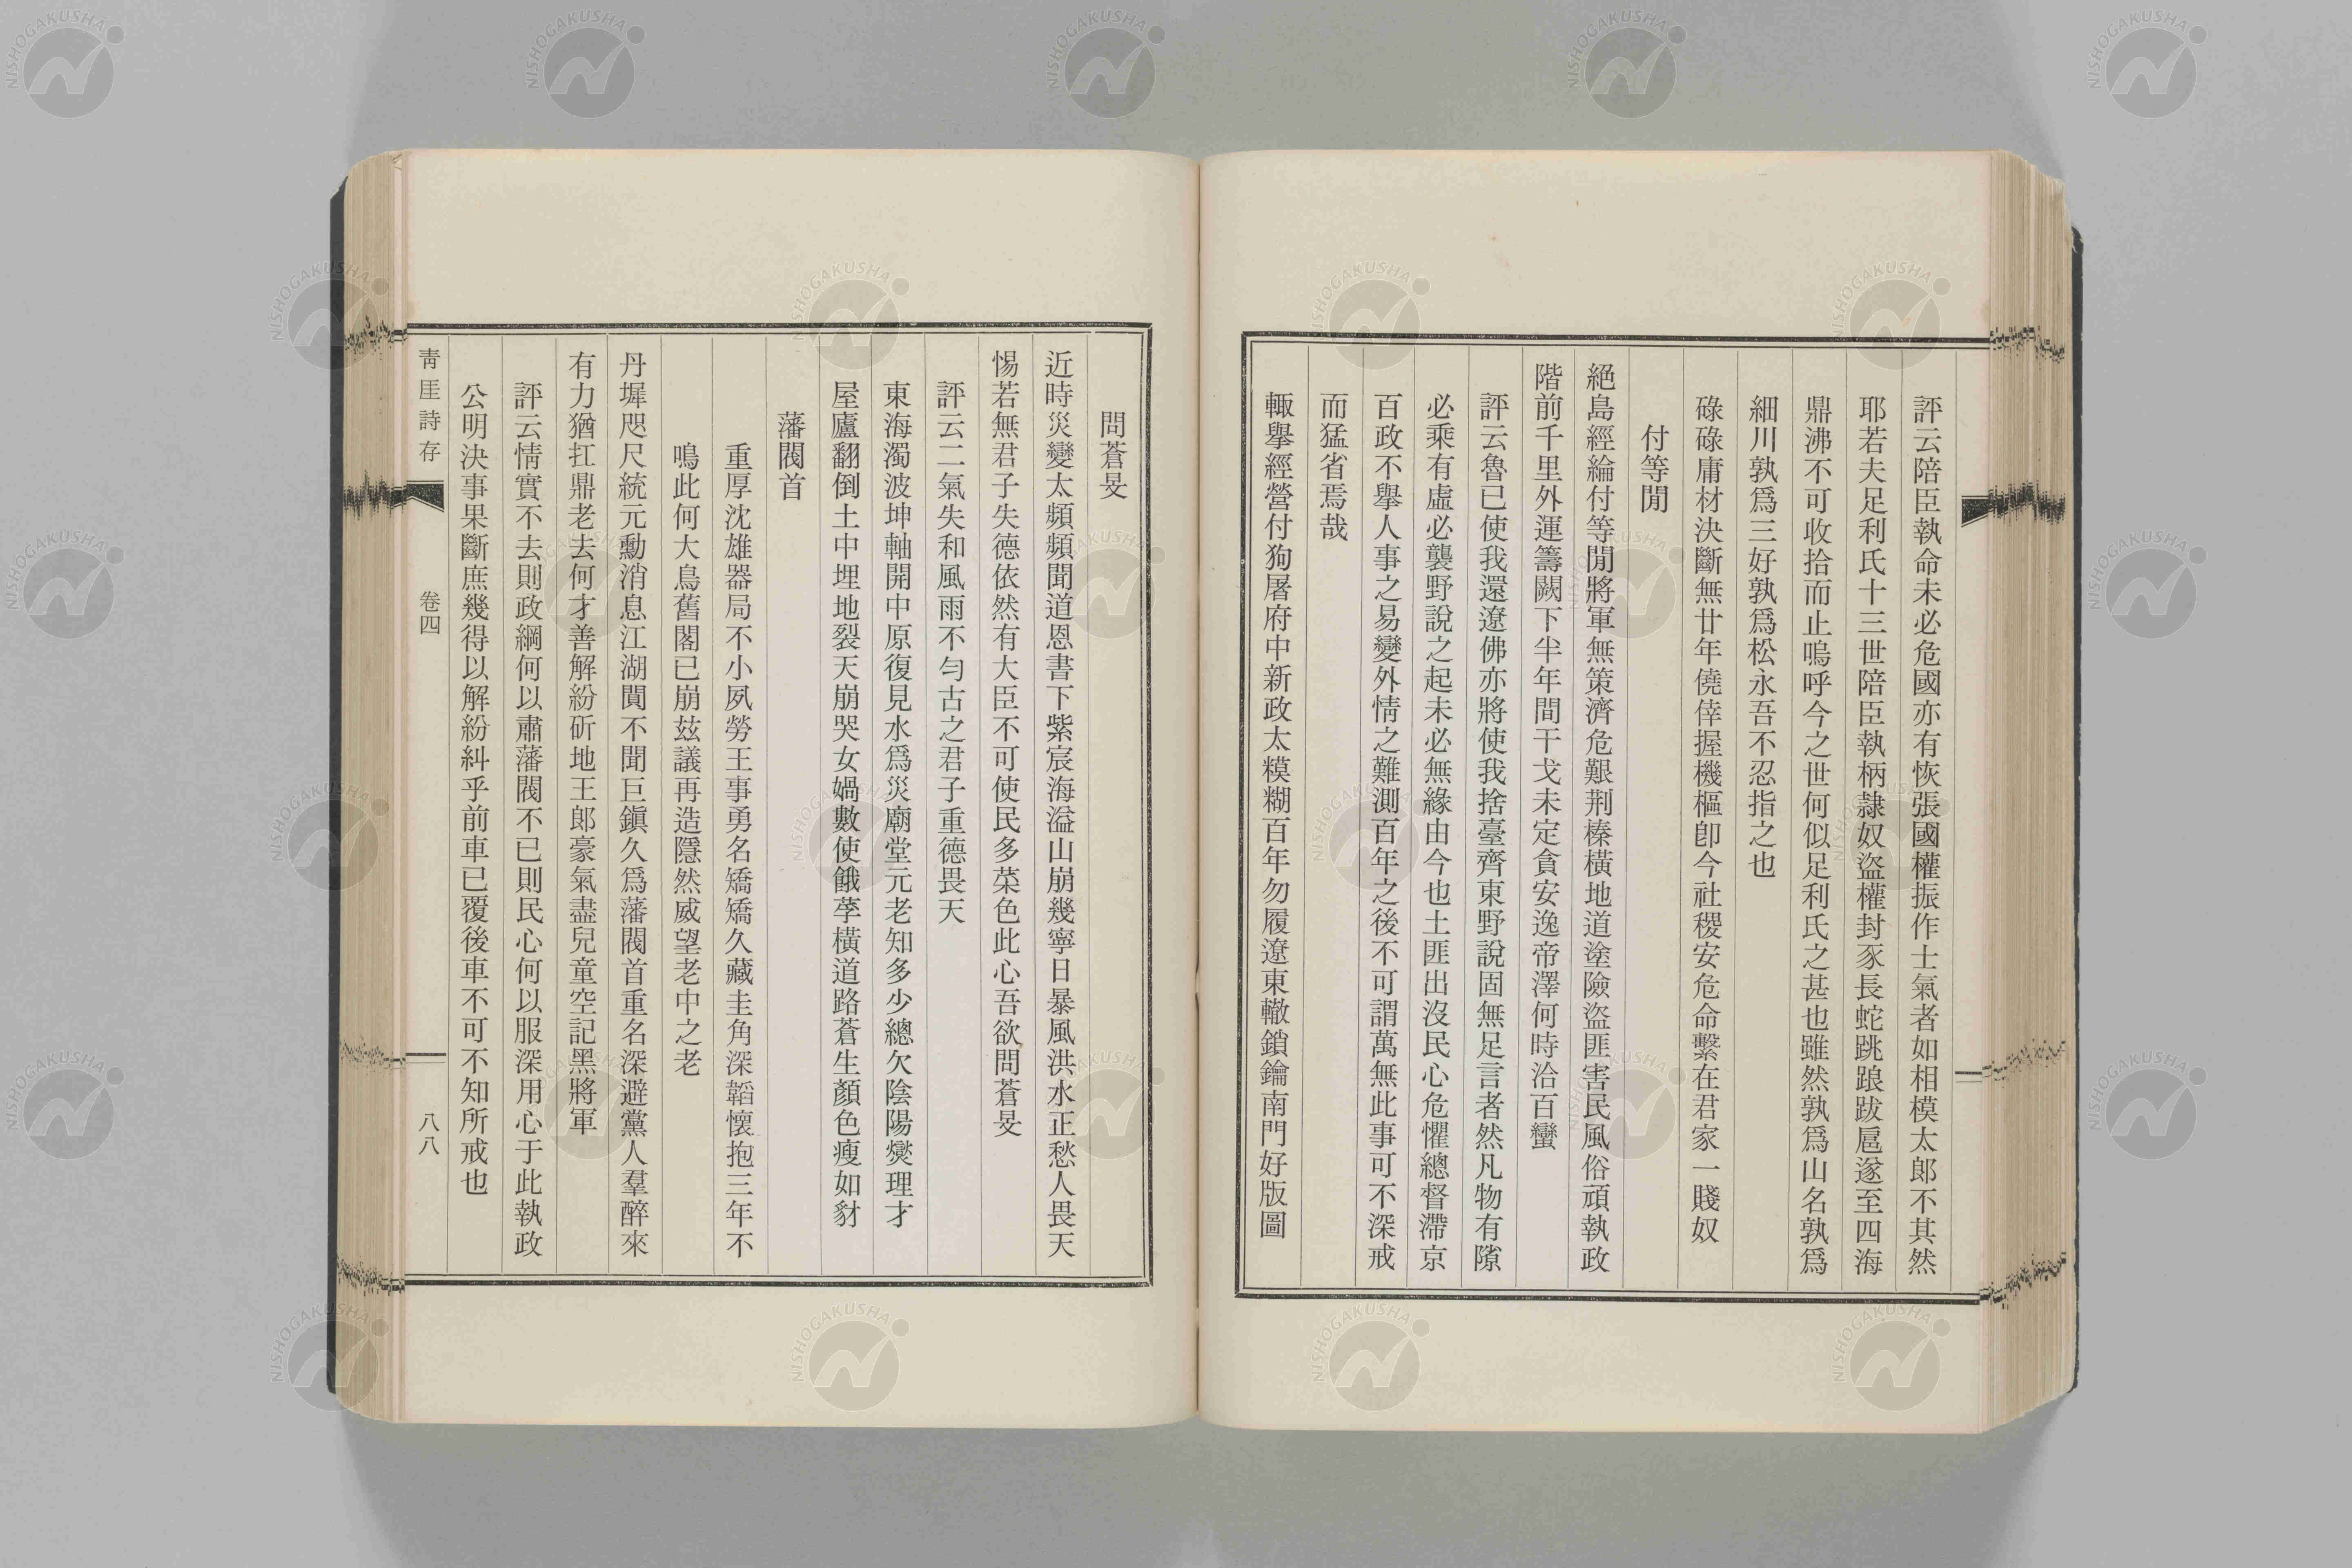 評云陪臣執命未必危國亦有恢張國權振作士氣者如相模太郎不其然
耶若夫足利氏十三世陪臣執柄隷奴盜權封豕長蛇跳踉跋扈遂至四海
鼎沸不可收拾而止嗚呼今之世何似足利氏之甚也雖然孰爲山名孰爲
細川孰爲三好孰爲松永吾不忍指之也
碌碌庸材決斷無廿年僥倖握機樞卽今社稷安危命繫在君家一賤奴
付等閒
絕島經綸付等閒將軍無策濟危艱荆榛橫地道塗險盜匪害民風俗頑執政
階前千里外運籌闕下半年間干戈未定貪安逸帝澤何時洽百蠻
評云魯已使我還遼佛亦將使我捨臺齊東野說固無足言者然凡物有隙
必乘有虛必襲野說之起未必無緣由今也土匪出沒民心危懼總督滯京
百政不擧人事之易變外情之難測百年之後不可謂萬無此事可不深戒
而猛省焉哉
輙擧經營付狗屠府中新政太糢糊百年勿履遼東轍鎖鑰南門好版圖
問蒼旻
近時災變太頻頻聞道恩書下紫宸海溢山崩幾寧日暴風洪水正愁人畏天
惕若無君子失德依然有大臣不可使民多菜色此心吾欲問蒼旻
評云二氣失和風雨不勻古之君子重德畏天
東海濁波坤軸開中原復見水爲災廟堂元老知多少總欠陰陽爕理才
屋廬翻倒土中埋地裂天崩哭女媧數使餓莩橫道路蒼生顏色瘦如豺
藩閥首
重厚沈雄器局不小夙勞王事勇名矯矯久藏圭角深韜懷抱三年不
鳴此何大鳥舊閣已崩玆議再造隱然威望老中之老
丹墀咫尺統元勳消息江湖聞不聞巨鎭久爲藩閥首重名深避黨人羣醉來
有力猶扛鼎老去何才善解紛斫地王郎豪氣盡兒童空記黑將軍
評云情實不去則政綱何以肅藩閥不已則民心何以服深用心于此執政
公明決事果斷庶幾得以解紛糾乎前車已覆後車不可不知所戒也
靑厓詩存
卷四
八八
NISHOGAKUSHA